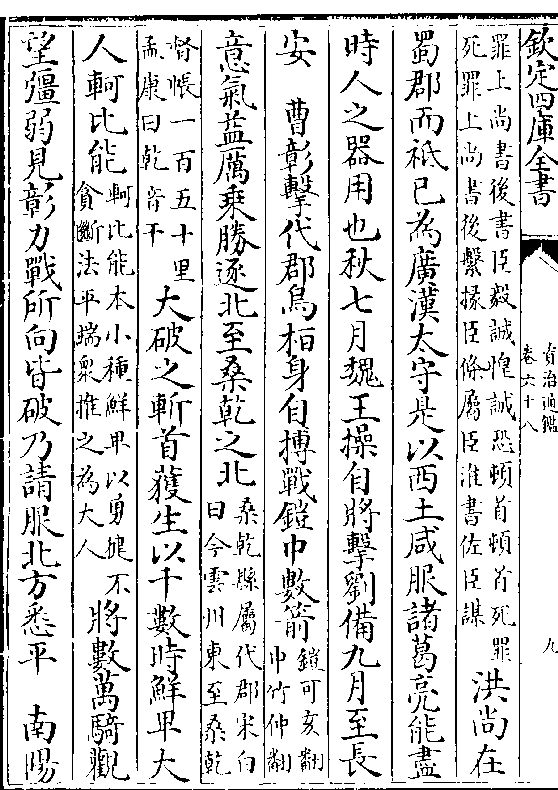 欽定四庫全書
資治通鑑
卷六十八
九
罪上尚書後書臣毅誠惶誠恐頓首頓首死罪
死罪上尚書後繫掾臣條屬臣淮書佐臣謀
洪尚在
蜀郡而祗已為廣漢太守是以西土咸服諸葛亮能盡
時人之器用也秋七月魏王操自將擊劉備九月至長
安　曹彰擊代郡烏桓身自搏戰鎧中數箭
鎧可亥翻
中竹仲翻
意氣益厲乗勝逐北至桑乾之北
桑乾縣屬代郡宋白
曰今雲州東至桑乾
督帳一百五十里
孟康曰乾音干
大破之斬首獲生以千數時鮮卑大
人軻比能
軻比能本小種鮮卑以勇健不
貪斷法平端衆推之為大人
將數萬騎觀
望彊弱見彰力戰所向皆破乃請服北方悉平　南陽